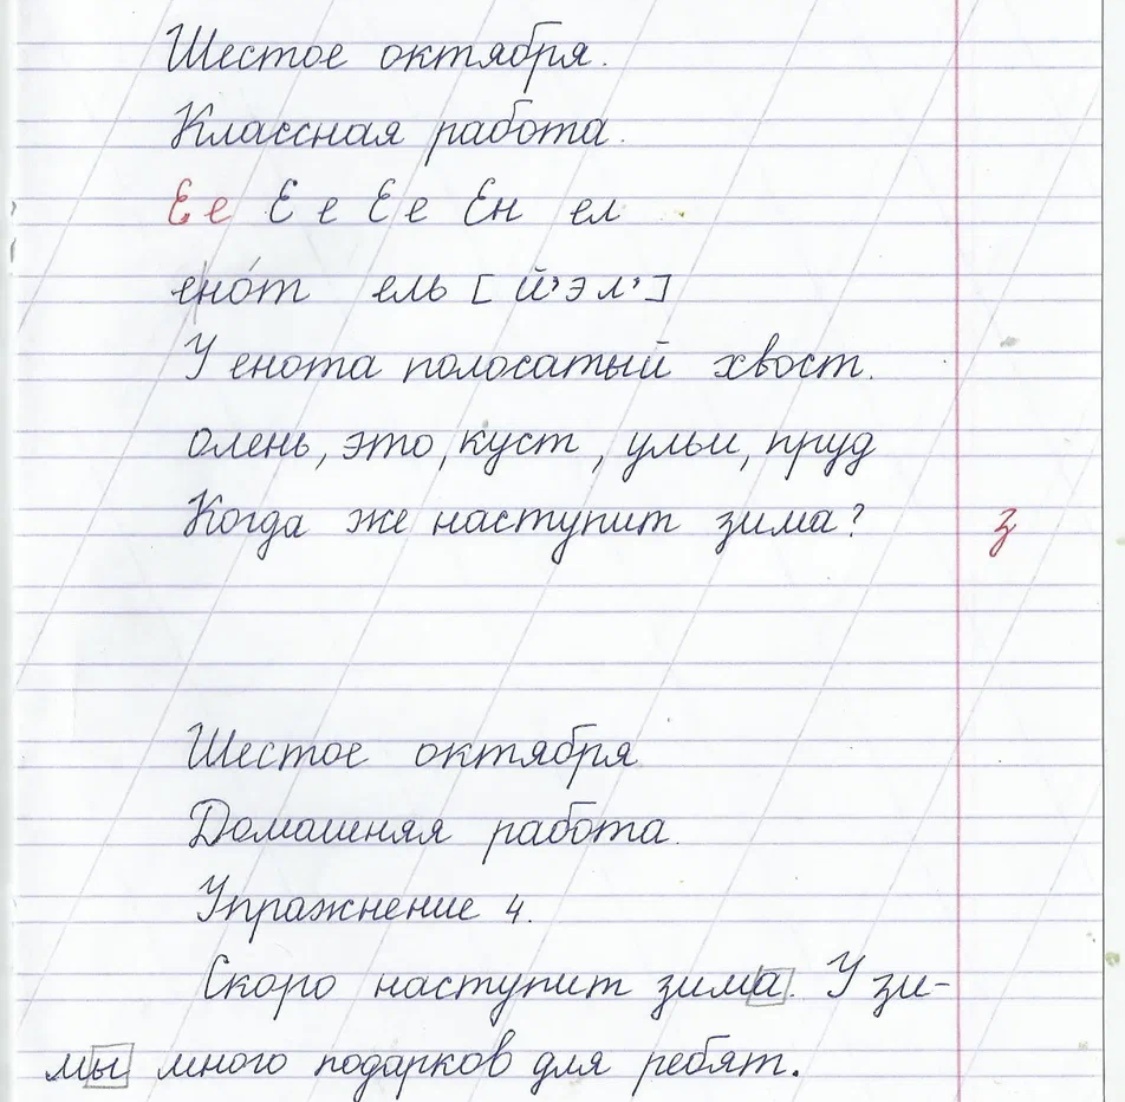 Шестое октября.
Классная работа.
Е е Е е Е е Ен ел
ено́т ель [й’эл’]
У енота полосатый хвост.
олень, это, куст, ульи, пруд
Когда же наступит зима? з
Шестое октября
Домашняя работа.
Упражнение 4.
Скоро наступит зима. У зи-
мы много подарков для ребят.